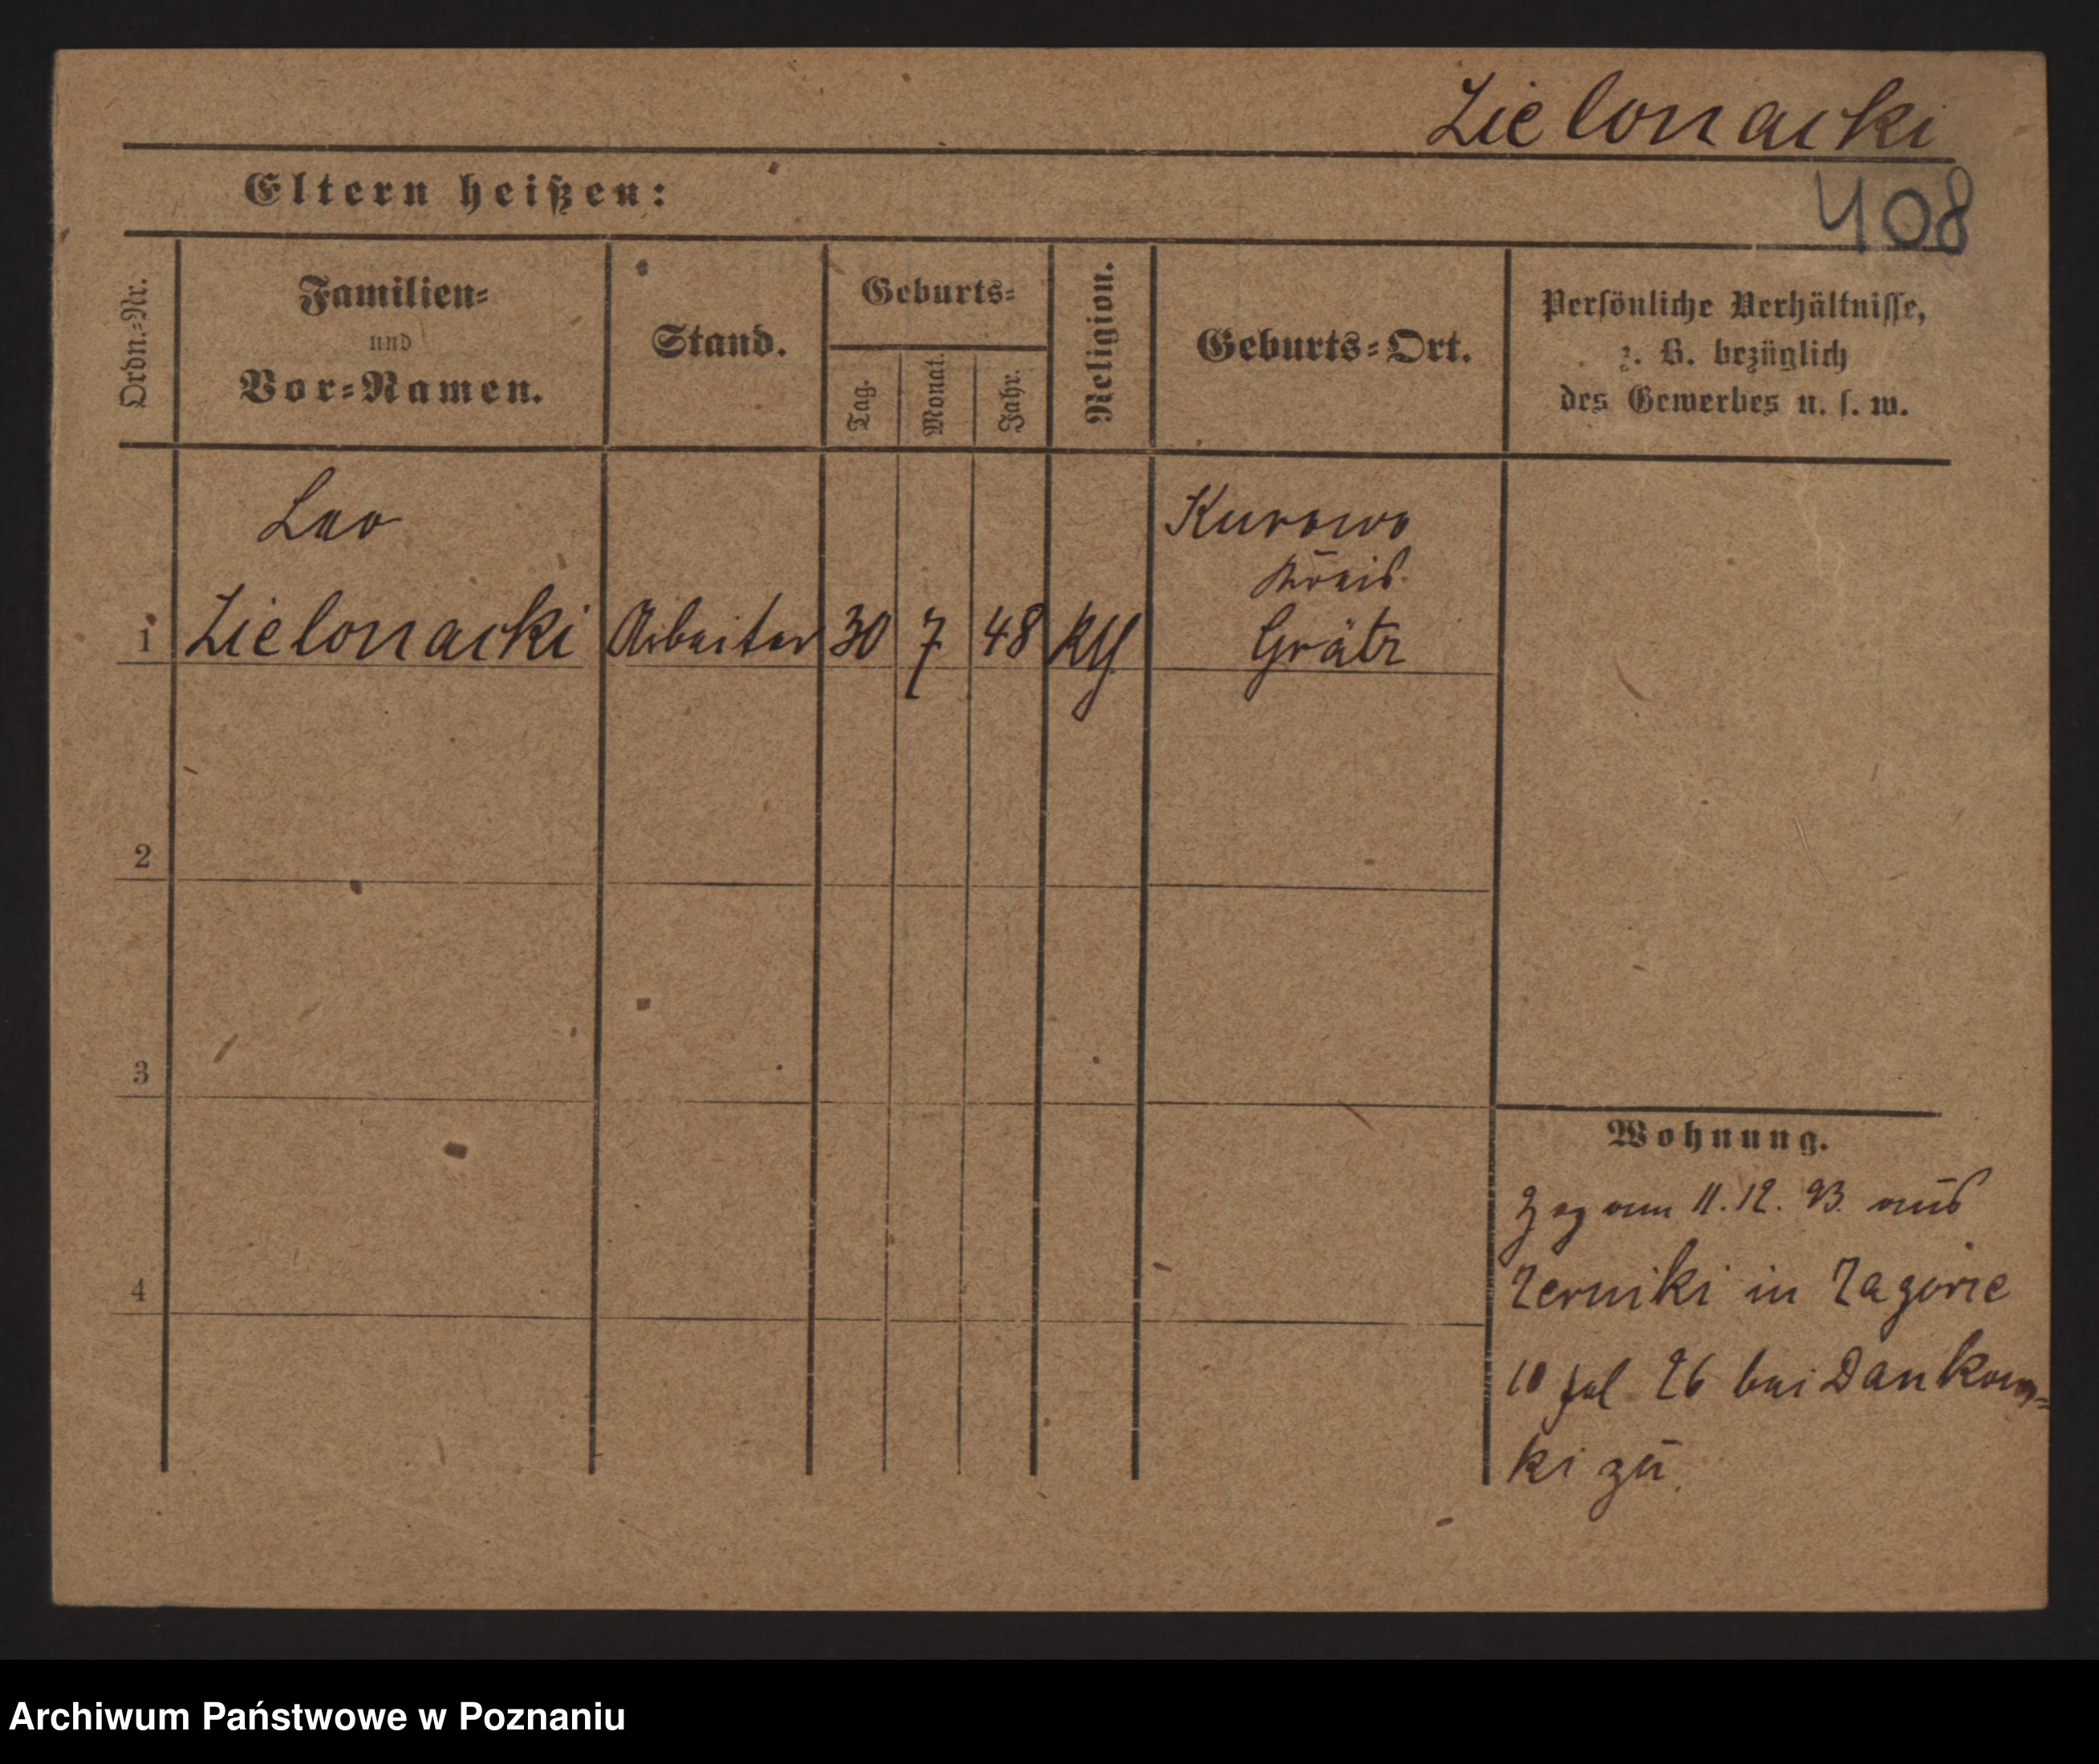 Zielonacki
408
Eltern heißen:
Ordn.-Nr.
Familien-
und
Vor-Namen.
Stand.
Geburts-
Tag.
Monat.
Jahr.
Religion.
Geburts-Ort.
Persönliche Verhältnisse,
z. B. bezüglich
des Gewerbes u. s. w.
Leo
Kurowo
Kreis
1 Zielonacki Arbeiter 30 7 48 Grätz
2
3
4
Wohnung.
Zog am 11.12.93. aus
Zerniki in Zagorze
10 26 bei Dankow-
ki zu.
Archiwum Państwowe w Poznaniu